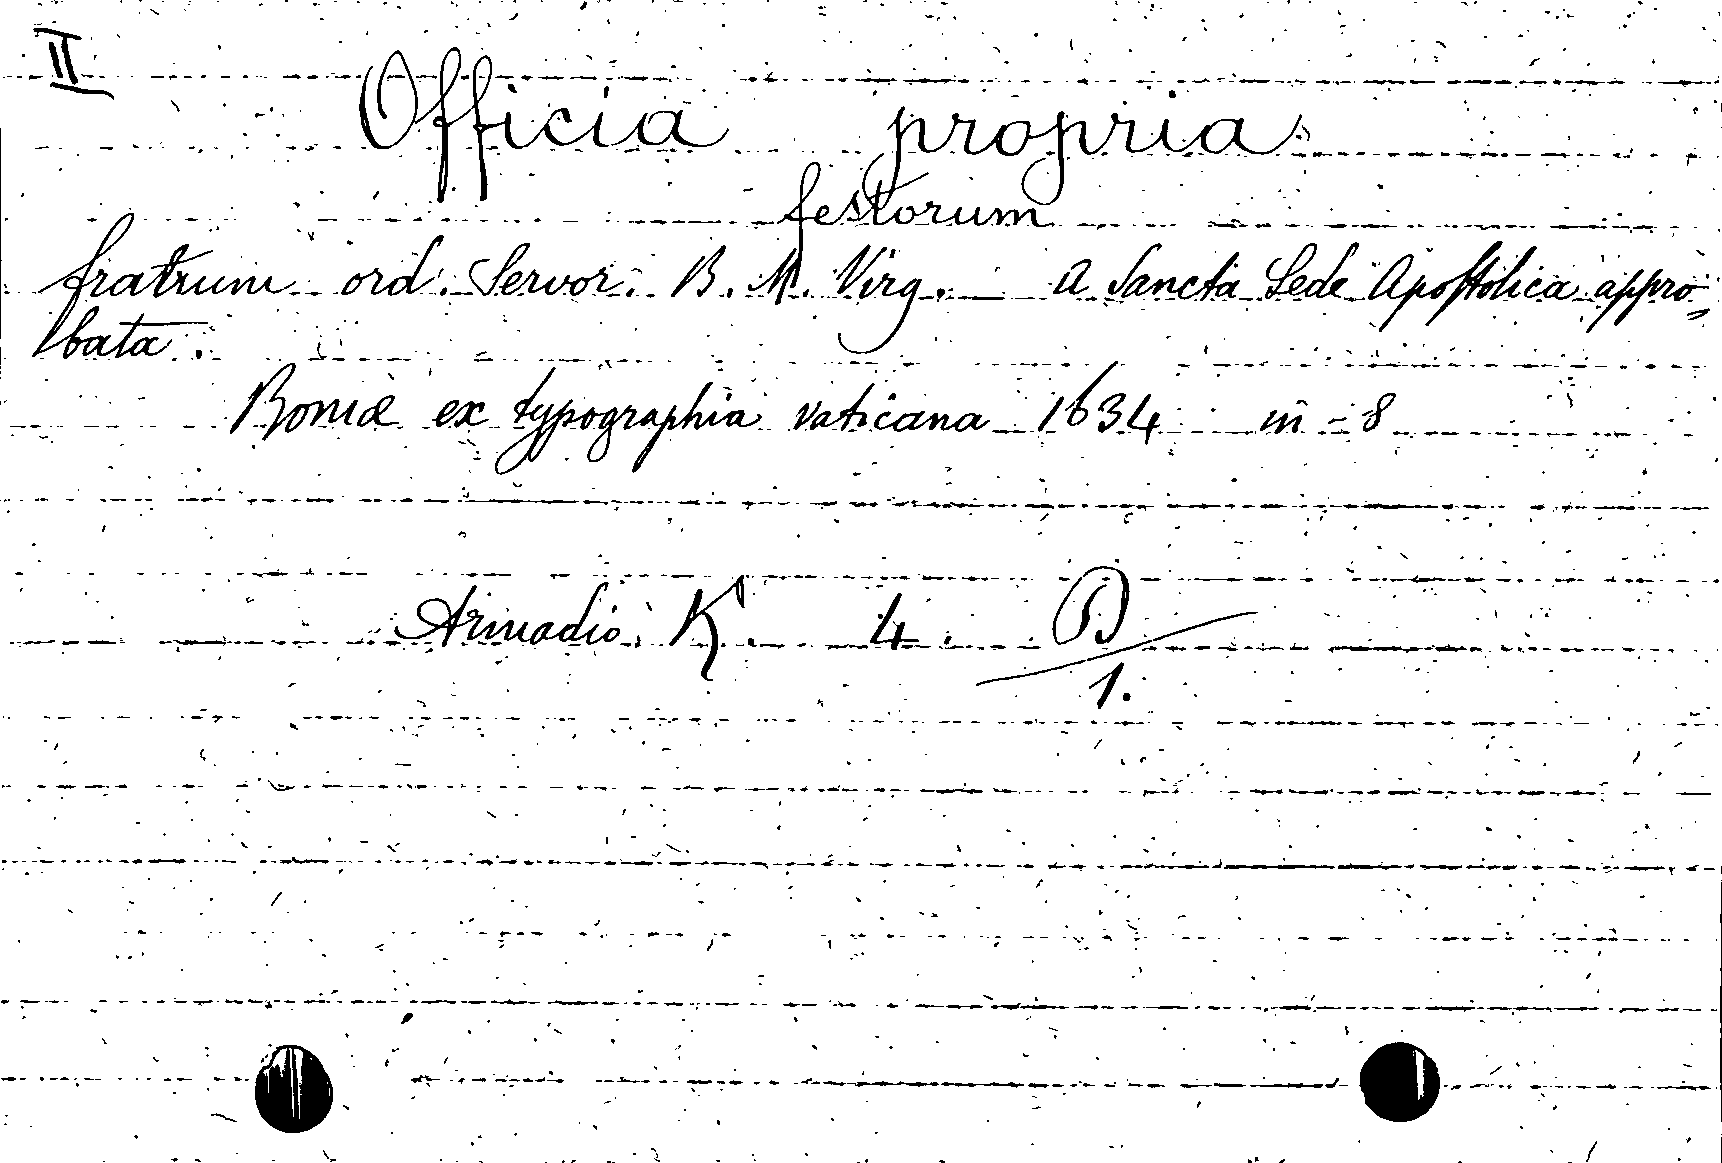 II
Officia propria
festorum
fratrum ord. Servor. B. M. Virg. – a Sancta Sede Apostolica appro=
bata.
Romæ ex typographia vaticana 1634 in-8
Armadio K. 4. D
1.